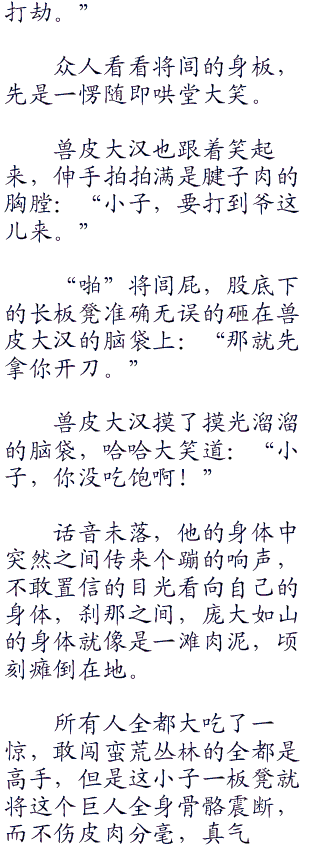 打劫。”
众人看看将闾的身板，
先是一愣随即哄堂大笑。
兽皮大汉也跟着笑起
来，伸手拍拍满是腱子肉的
胸膛：“小子，要打到爷这
儿来。”
“啪”将闾屁，股底下
的长板凳准确无误的砸在兽
皮大汉的脑袋上：“那就先
拿你开刀。”
兽皮大汉摸了摸光溜溜
的脑袋，哈哈大笑道：“小
子，你没吃饱啊！”
话音未落，他的身体中
突然之间传来个蹦的响声，
不敢置信的目光看向自己的
身体，刹那之间，庞大如山
的身体就像是一滩肉泥，顷
刻瘫倒在地。
所有人全都大吃了一
惊，敢闯蛮荒丛林的全都是
高手，但是这小子一板凳就
将这个巨人全身骨骼震断，
而不伤皮肉分毫，真气